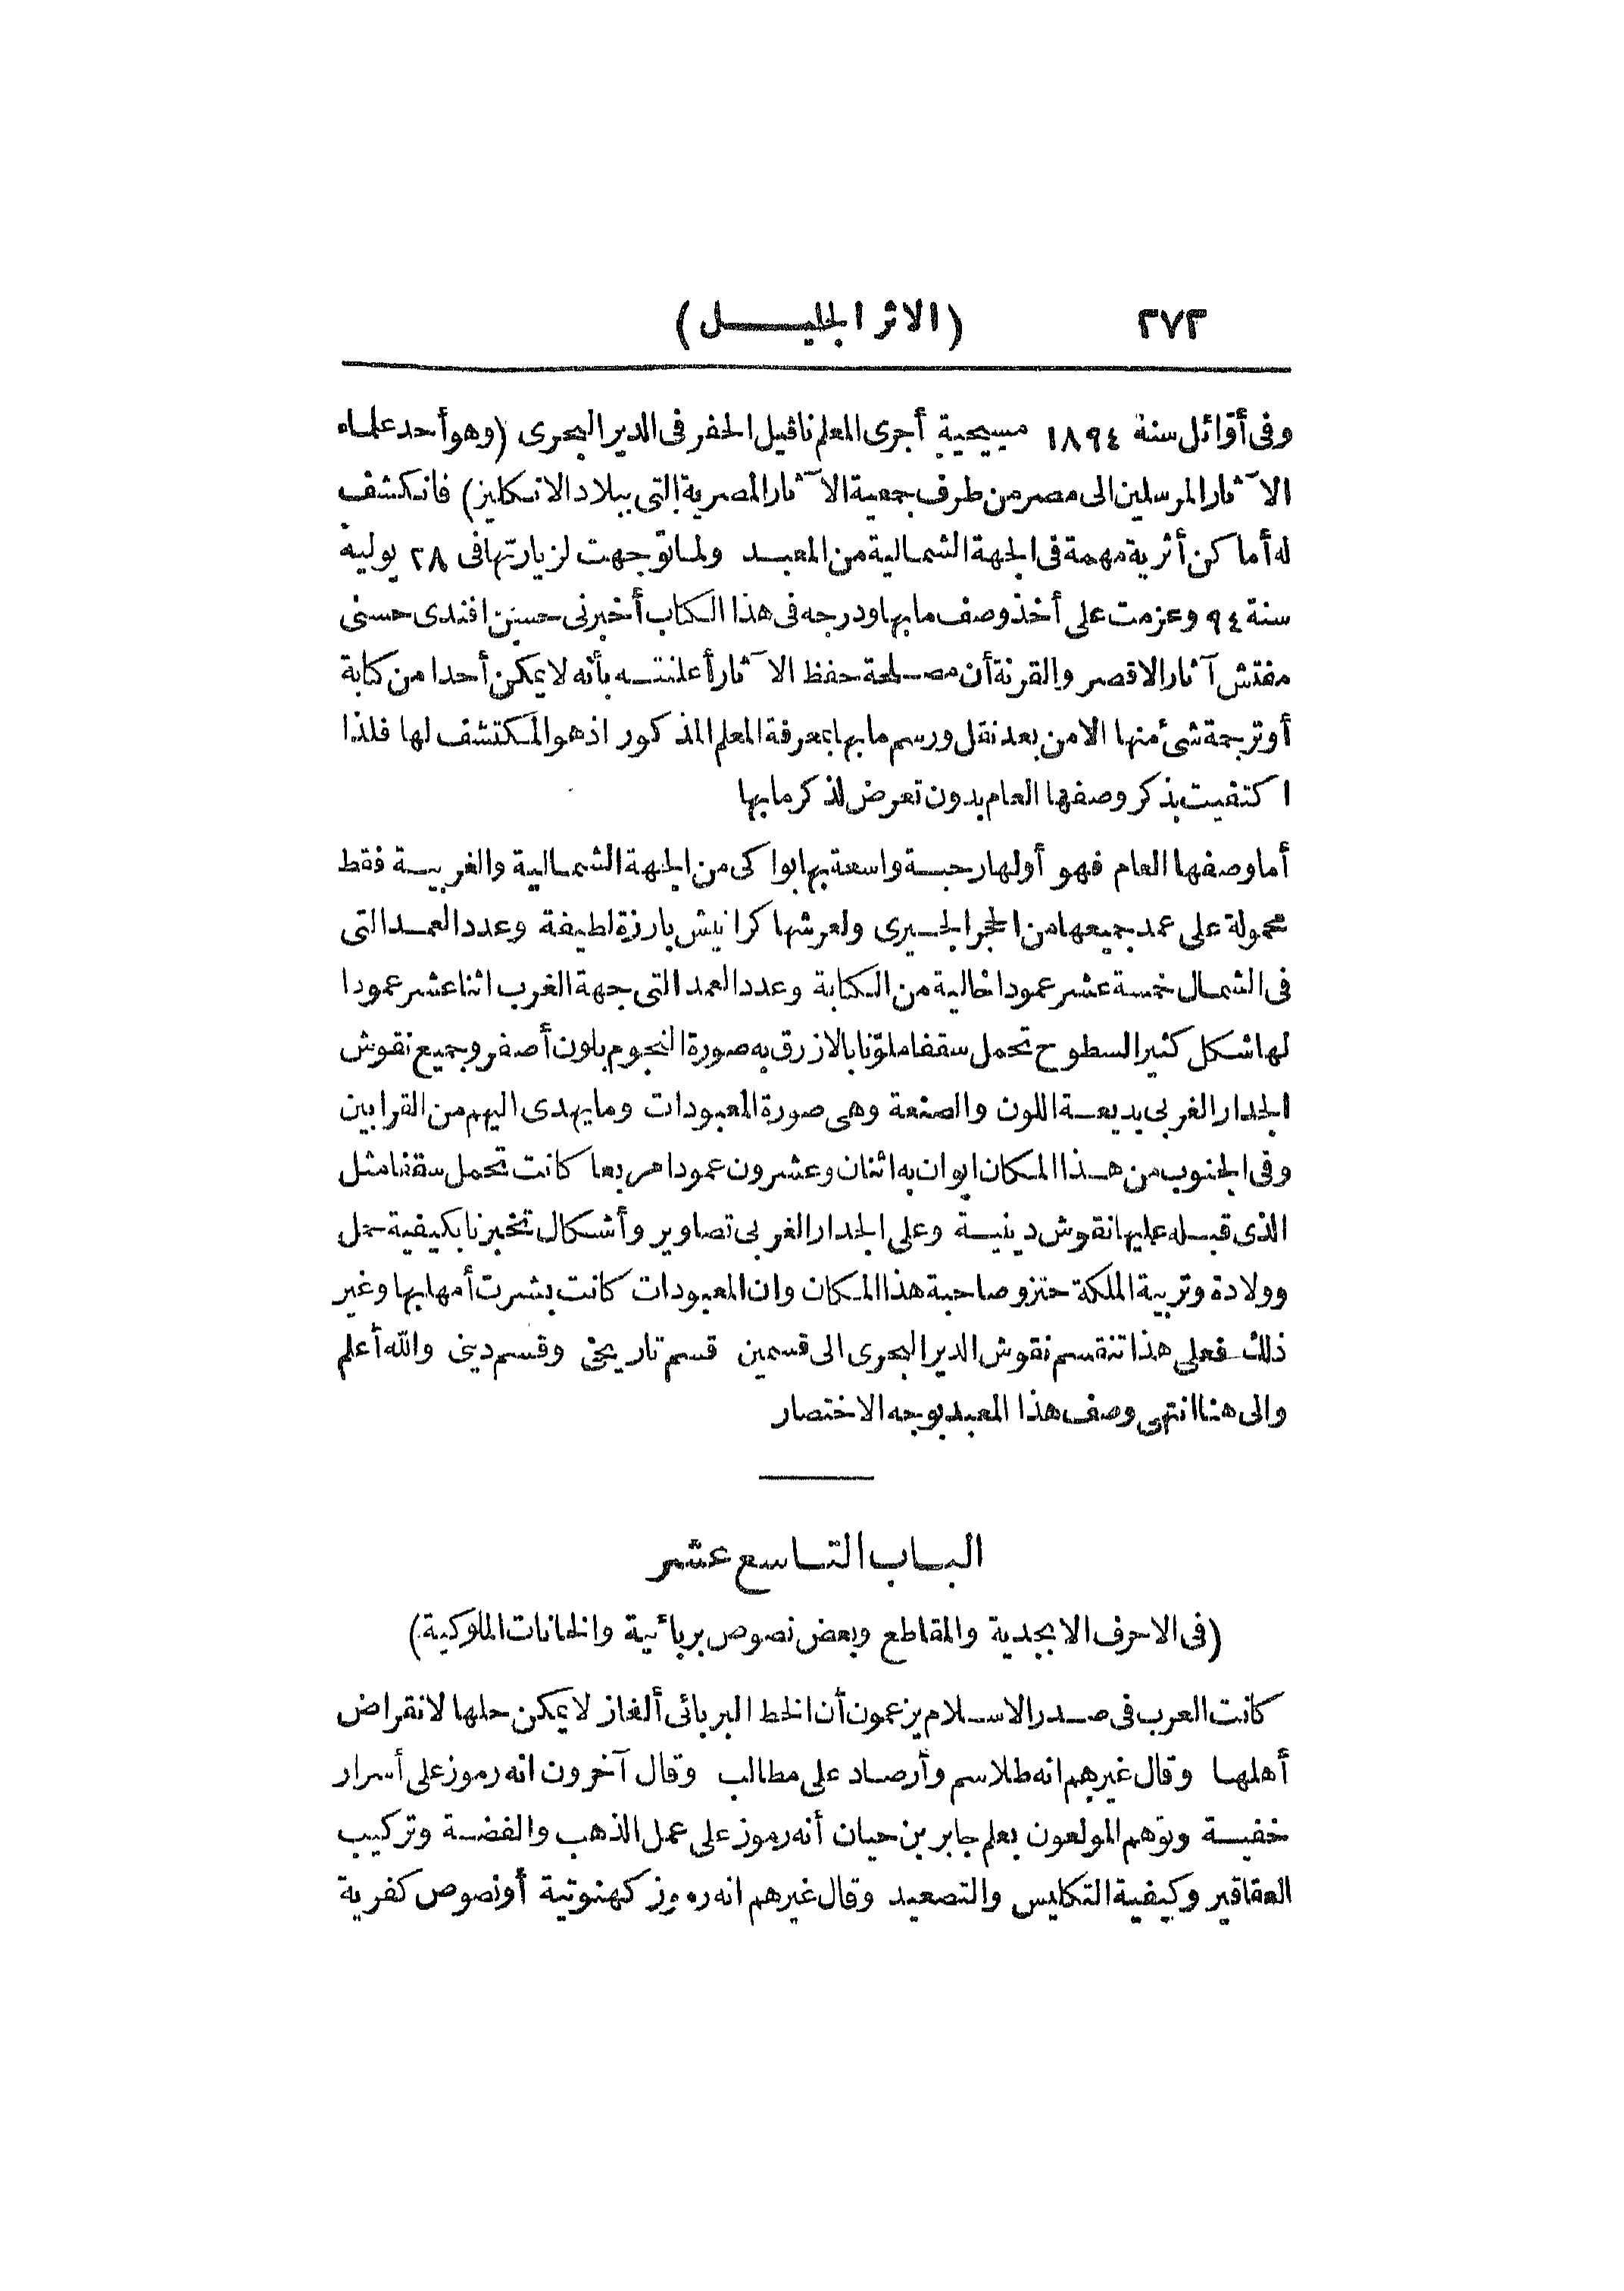 ٢٧٢ (الاثر الجليل)
وفى أوائل سنة ١٨٩٤ مسيحية أجرى المعلم نافيل الحفر فى الدير البحرى (وهو أحد علماء
الآثار المرسلين الى مصر من طرف جمعية الآثار المصرية التى ببلاد الانكليز) فانكشف
له أماكن أثرية مهمة فى الجهة الشمالية من المعبد ولما توجهت لزيارتها فى ٢٨ يولية
سنة ٩٤ وعزمت على أخذ وصف ما بها ودرجه فى هذا الكتاب أخبرنى حسين افندى حسنى
مفتش آثار الاقصر والقرنة أن مصلحة حفظ الآثار أعلنته بأنه لا يمكن أحدا من كتابة
أو ترجمة شئ منها الا من بعد نقل ورسم ما بها بمعرفة المعلم المذكور اذ هو المكتشف لها فلذا
اكتفيت بذكر وصفها العام بدون تعرض لذكر ما بها
أما وصفها العام فهو أولها رحبة واسعة بها بواكى من الجهة الشمالية والغربية فقط
محمولة على عمد جميعها من الحجر الجيرى ولعرشها كرانيش بارزة لطيفة وعدد العمد التى
فى الشمال خمسة عشر عمودا خالية من الكتابة وعدد العمد التى جهة الغرب اثنا عشر عمودا
لها شكل كثير السطوح تحمل سقفا ملوّنا بالازرق به صورة النجوم بلون أصفر وجميع نقوش
الجدار الغربى بديعة اللون والصنعة وهى صورة المعبودات وما يهدى اليهم من القرابين
وفى الجنوب من هذا المكان ايوان به اثنان وعشرون عمودا مربعا كانت تحمل سقفا مثل
الذى قبله عليها نقوش دينية وعلى الجدار الغربى تصاوير وأشكال تخبرنا بكيفية حمل
وولادة وتربية الملكة حتزو صاحبة هذا المكان وان المعبودات كانت بشرت أمها بها وغير
ذلك فعلى هذا تنقسم نقوش الدير البحرى الى قسمين قسم تاريخى وقسم دينى والله أعلم
والى هنا انتهى وصف هذا المعبد بوجه الاختصار
الباب التاسع عشر
(فى الاحرف الابجدية والمقاطع وبعض نصوص بربائية والخانات الملوكية)
كانت العرب فى صدر الاسلام يزعمون أن الخط البربائى ألغاز لا يمكن حلها لانقراض
أهلها وقال غيرهم انه طلاسم وأرصاد على مطالب وقال آخرون انه رموز على أسرار
خفية وتوهم المولعون بعلم جابر بن حيان أنه رموز على عمل الذهب والفضة وتركيب
العقاقير وكيفية التكليس والتصعيد وقال غيرهم انه رموز كهنوتية أو نصوص كفرية